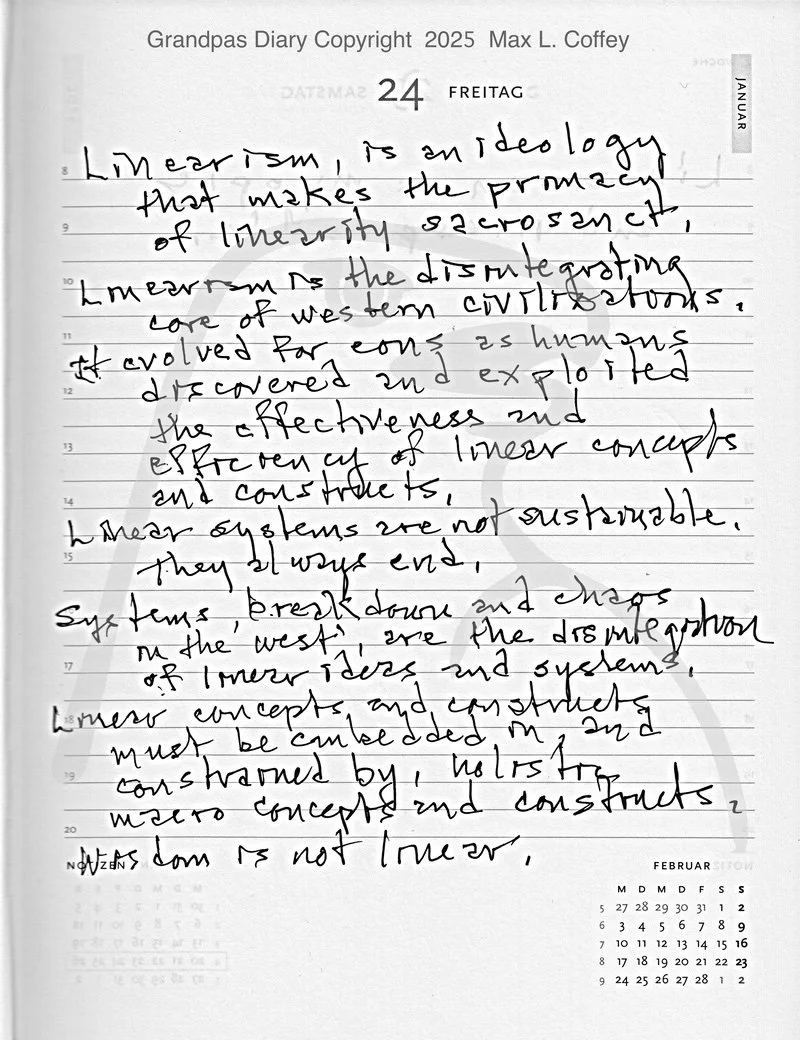 Grandpas Diary Copyright 2025 Max L. Coffey
24 FREITAG
JANUAR
8
Linearism, is an ideology
that makes the primacy
9
of linearity sacrosanct.
10
Linearism is the disintegrating
core of western civilizations.
11
It evolved for eons as humans
12
discovered and exploited
the effectiveness and
13
efficiency of linear concepts
and constructs.
14
Linear systems are not sustainable.
15
They always end.
Systems, breakdown and chaos
in the 'west', are the disintegration
17
of linear ideas and systems.
18
Linear concepts and constructs
must be embedded in, and
19
constrained by, holistic
macro concepts and constructs.
20
NOTIZEN
Wisdom is not linear.
FEBRUAR
M D M D F S S
5 27 28 29 30 31 1 2
6 3 4 5 6 7 8 9
7 10 11 12 13 14 15 16
8 17 18 19 20 21 22 23
9 24 25 26 27 28 1 2